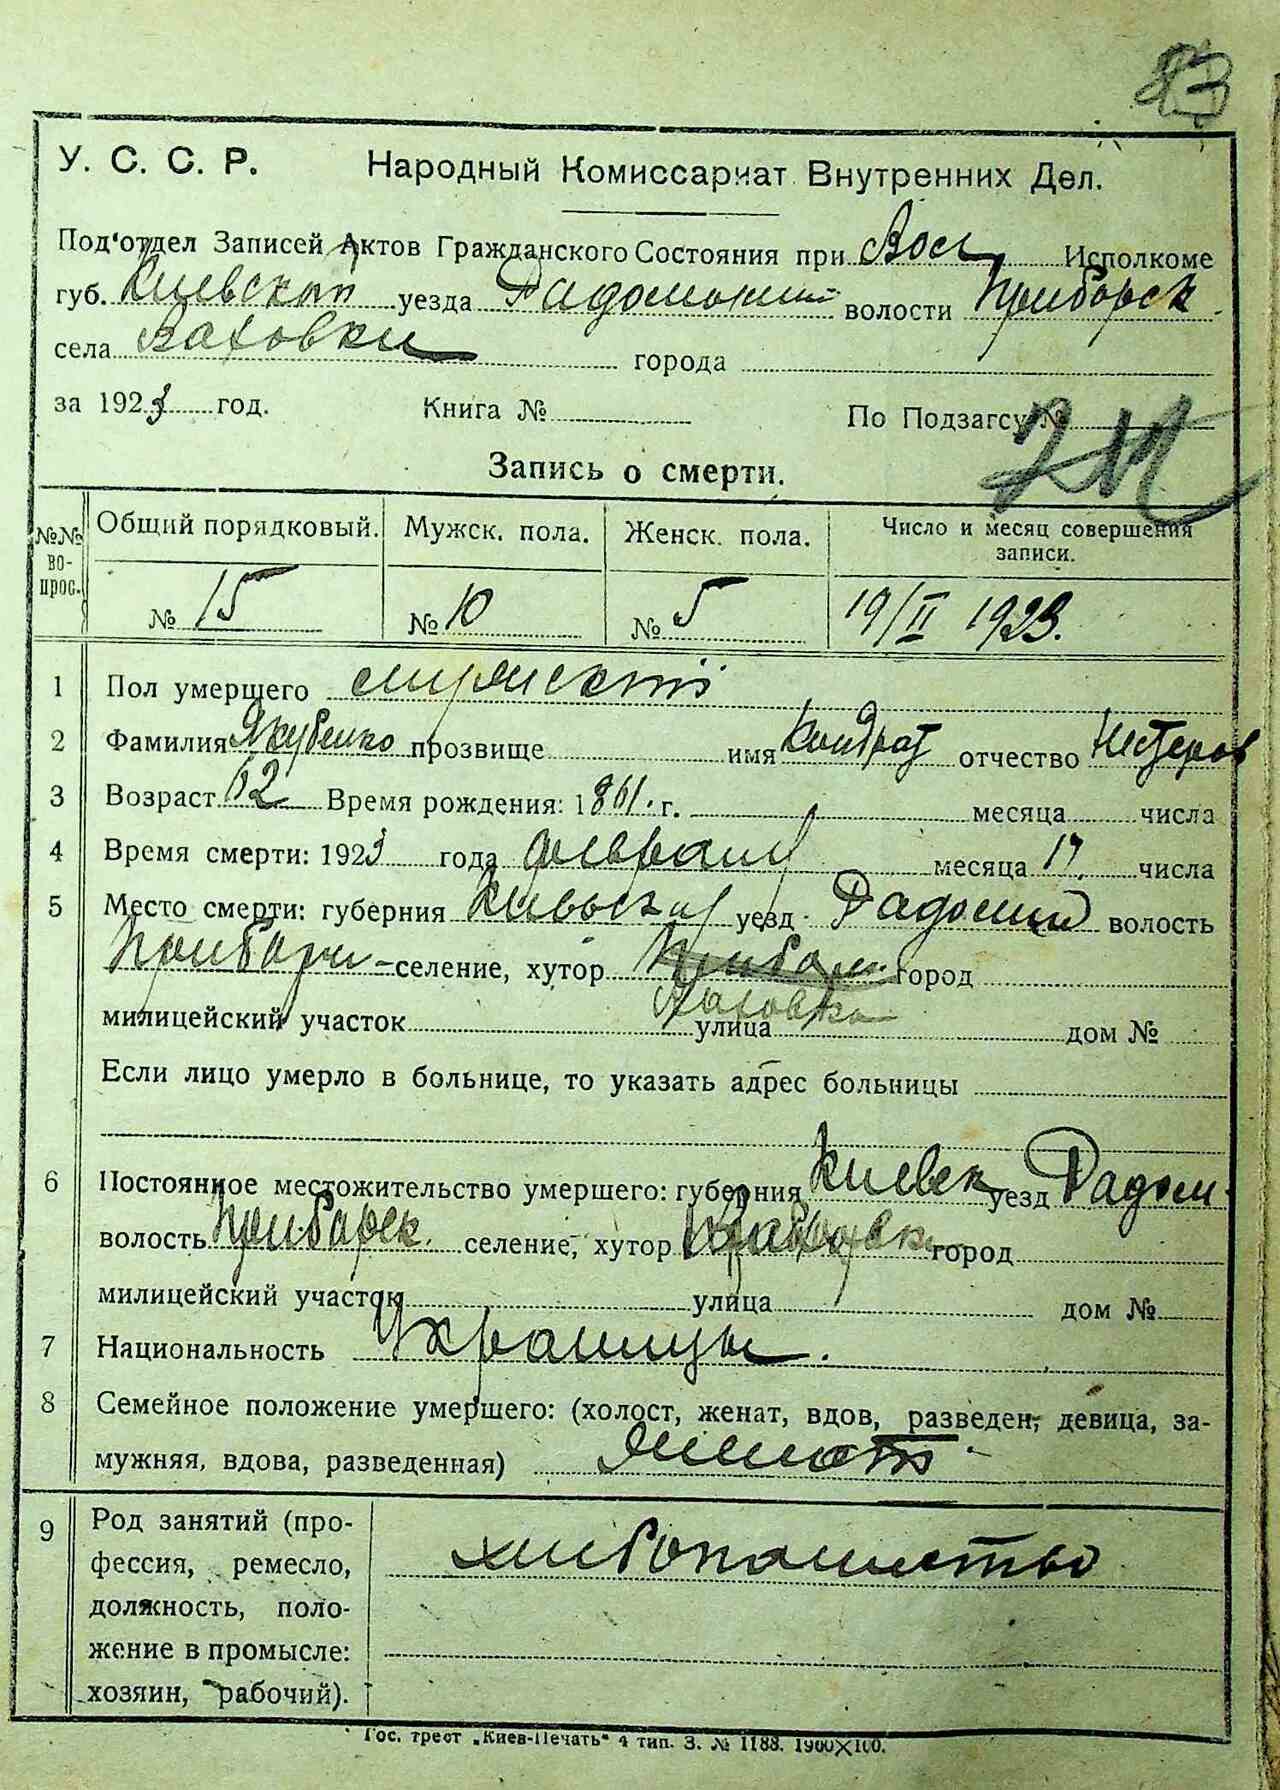 83
У. С. С. Р. Народный Комиссариат Внутренних Дел.
Под'отдел Записей Актов Гражданского Состояния при Вол Исполкоме
губ. Киевской уезда Радомысл волости Приборск
села
за 1923 год. Книга № По Подзагсу №
Запись о смерти.
№№ во-прос. Общий порядковый. Мужск. пола. Женск. пола. Число и месяц совершения записи.
№ 15 № 10 № 5 19/II 1923.
1 Пол умершего мужской
2 Фамилия Якубенко прозвище имя Кондрат отчество Нестеров
3 Возраст 62 Время рождения: 1861. г. месяца числа
4 Время смерти: 1923 года февраля месяца 17. числа
5 Место смерти: губерния Киевская уезд Радомысл волость
Приборск селение, хутор город
милицейский участок улица дом №
Если лицо умерло в больнице, то указать адрес больницы
6 Постоянное местожительство умершего: губерния Киевск уезд Радом.
волость Приборск. селение, хутор город
милицейский участок улица дом №
7 Национальность Украинец.
8 Семейное положение умершего: (холост, женат, вдов, разведен, девица, за-
мужняя, вдова, разведенная) женат
9 Род занятий (про-
фессия, ремесло,
должность, поло-
жение в промысле:
хозяин, рабочий).
хлебопашество
Гос. трест „Киев-Печать“ 4 тип. З. № 1188. 1900×100.